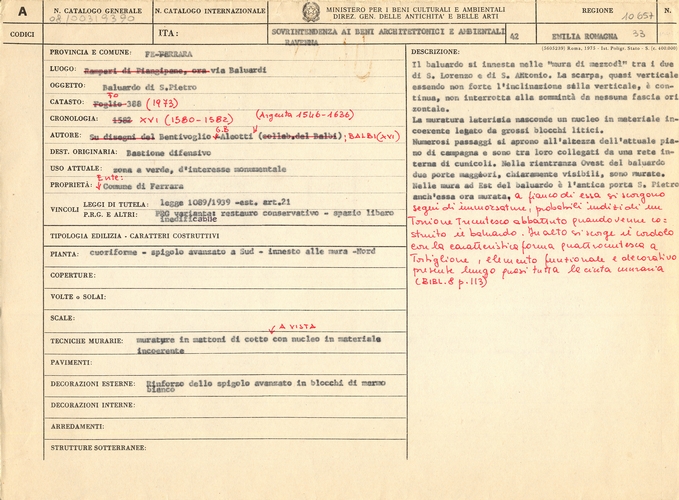 A
CODICI
N. CATALOGO GENERALE
08/00319390
N. CATALOGO INTERNAZIONALE
ITA:
MINISTERO PER I BENI CULTURALI E AMBIENTALI
DIREZ. GEN. DELLE ANTICHITA' E BELLE ARTI
SOVRINTENDENZA AI BENI ARCHITETTONICI E AMBIENTALI
RAVENNA
42
REGIONE
10657
EMILIA ROMAGNA
33
N.
(5603239) Roma, 1975 - Ist. Poligr. Stato - S. (c. 400.000)
PROVINCIA E COMUNE: FE-FERRARA
LUOGO: Rampari di Piangipane, ora via Baluardi
OGGETTO: Baluardo di S.Pietro
CATASTO: Foglio 388 Fo (1973)
CRONOLOGIA: 1582 XVI (1580-1582) (Argenta 1546-1636)
AUTORE: Su disegni del Bentivoglio G.B Aleotti (collab.del Balbi); BALBI (XVI)
DEST. ORIGINARIA: Bastione difensivo
USO ATTUALE: zona a verde, d'interesse monumentale
PROPRIETÀ: Ente: Comune di Ferrara
VINCOLI
LEGGI DI TUTELA: legge 1089/1939 -est. art.21
P.R.G. E ALTRI: PRG variante: restauro conservativo - spazio libero
inedificabile
TIPOLOGIA EDILIZIA - CARATTERI COSTRUTTIVI
PIANTA: cuoriforme - spigolo avanzato a Sud - innesto alle mura -Nord
COPERTURE:
VOLTE o SOLAI:
SCALE:
A VISTA
TECNICHE MURARIE: murature in mattoni di cotto con nucleo in materiale
incoerente
PAVIMENTI:
DECORAZIONI ESTERNE: Rinforzo dello spigolo avanzato in blocchi di marmo
bianco
DECORAZIONI INTERNE:
ARREDAMENTI:
STRUTTURE SOTTERRANEE:
DESCRIZIONE:
Il baluardo si innesta nelle "mura di mezzodì" tra i due
di S. Lorenzo e di S. ANtonio. La scarpa, quasi verticale
essendo non forte l'inclinazione sulla verticale, è con
tinua, non interrotta alla sommità da nessuna fascia oriz
zontale.
La muratura laterizia nasconde un nucleo in materiale in-
coerente legato da grossi blocchi litici.
Numerosi passaggi si aprono all'altezza dell'attuale pia-
no di campagna e sono tra loro collegati da una rete in-
terna di cunicoli. Nella rientranza Ovest del baluardo
due porte maggiori, chiaramente visibili, sono murate.
Nelle mura ad Est del baluardo è l'antica porta S. Pietro
anch'essa ora murata, a fianco di essa si scorgono
segni di immorsature, probabili indizi di un
Torrione Trecentesco abbattuto quando venne co-
struito il baluardo. In alto si scorge il cordolo
con la caratteristica forma quattrocentesca a
Tortiglione, elemento funzionale e decorativo
presente lungo quasi tutta la cinta muraria
(BIBL. 8 p.113)